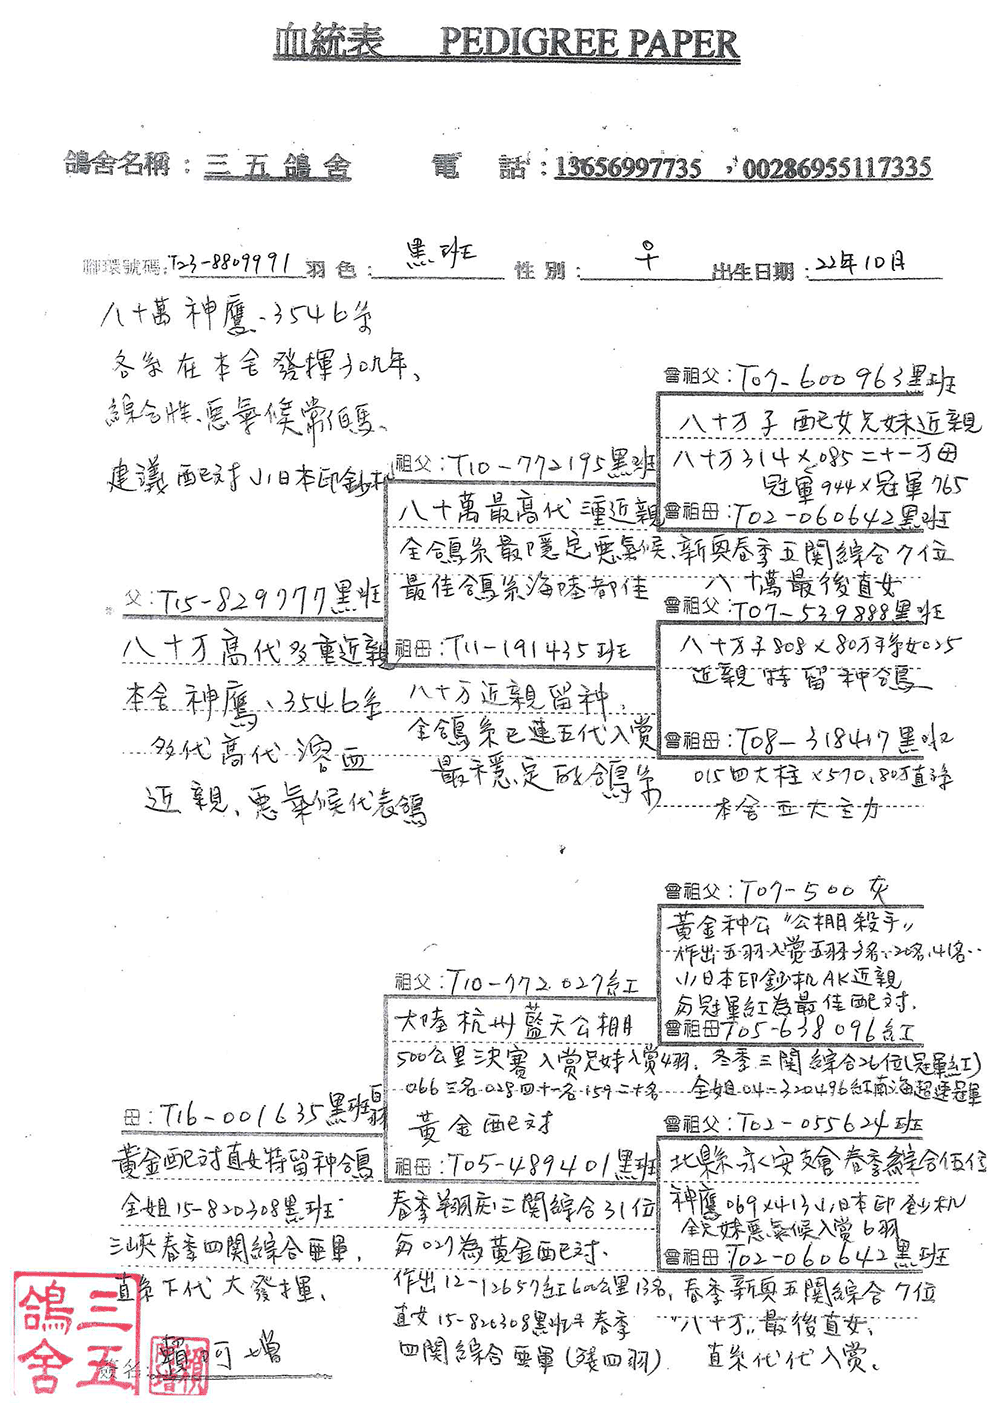 血統表 PEDIGREE PAPER
鴿舍名稱：三五鴿舍 電 話：13656997735，00286955117335
腳環號碼：T23-8809991 羽色：黑班 性別：♀ 出生日期：22年10月
八十萬神鷹、3546系
各系在本舍發揮30九年、
綜合性、惡氣候常伯馬、
建議配对小日本印鈔机
父：T15-829777黑班
八十万高代多重近親
本舍神鷹、3546系
多代高代溶血
近親、惡氣候代表鴿
祖父：T10-772195黑班
八十萬最高代三重近親
全鴿系最隱定惡氣候、
最佳鴿系海陸都佳
祖母：T11-191435班
八十万近親留种，
全鴿系已連五代入賞
最穩定的鴿系
曾祖父：T07-600963黑班
八十万子配女兄妹近親
八十万314×085二十一万母
冠軍944×冠軍765
曾祖母：T02-060642黑班
新奥春季五関綜合7位
八十萬最後直女
曾祖父：T07-539888黑班
八十万子808×80万孫女025
近親特留种鴿
曾祖母：T08-318417黑
015四大柱×570，80万直孫
本舍五大主力
母：T16-001635黑班白羽
黃金配对直女特留种鴿
全姐15-820308黑班
三峽春季四関綜合亜軍，
直系下代大發揮、
簽名：賴阿增
三五鴿舍
祖父：T10-772027紅
大陸杭州藍天公棚
500公里決賽入賞兄妹入賞4羽，
066三名·028四十一名·159二十名
黃金配对
祖母：T05-489401黑班
春季翔慶三関綜合31位
与027為黃金配对.
作出12-12657紅600公里13名，
直女15-820308黑班♀春季
四関綜合亜軍(殘四羽)
曾祖父：T07-500灰
黃金种公"公棚殺手"
作出五羽入賞五羽3名、20名，41名..
小日本印鈔机AK近親
与冠軍紅為最佳配对.
曾祖母：T05-638096紅
冬季三関綜合26位(冠軍紅)
全姐04-320496紅南海超速冠軍
曾祖父：T02-055624班
北縣永安支會春季綜合伍位
神鷹069×413小日本印鈔机
全兄妹惡氣候入賞6羽
曾祖母：T02-060642黑班
春季新奥五関綜合7位
"八十万"最後直女、
直系代代入賞。